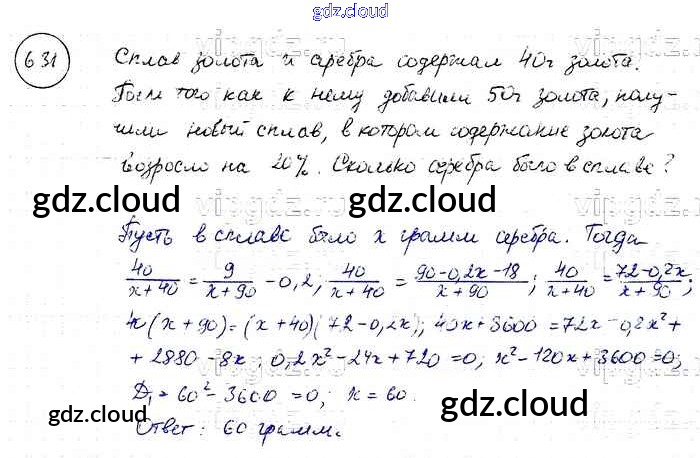 gdz.cloud
631 Сплав золота и серебра содержал 40г золота.
После того как к нему добавили 50г золота, полу-
чили новый сплав, в котором содержание золота
возросло на 20%. Сколько серебра было в сплаве?
gdz.cloud gdz.cloud
Пусть в сплаве было x грамм серебра. Тогда
40/(x+40) = 9/(x+90) - 0,2; 40/(x+40) = (90-0,2x-18)/(x+90); 40/(x+40) = (72-0,2x)/(x+90);
(x+90)=(x+40)(72-0,2x); 40x+3600=72x-0,2x²+
+2880-8x; 0,2x²-24x+720=0; x²-120x+3600=0;
D₁=60²-3600=0; x=60.
gdz.cloud gdz.cloud
Ответ: 60 грамм.